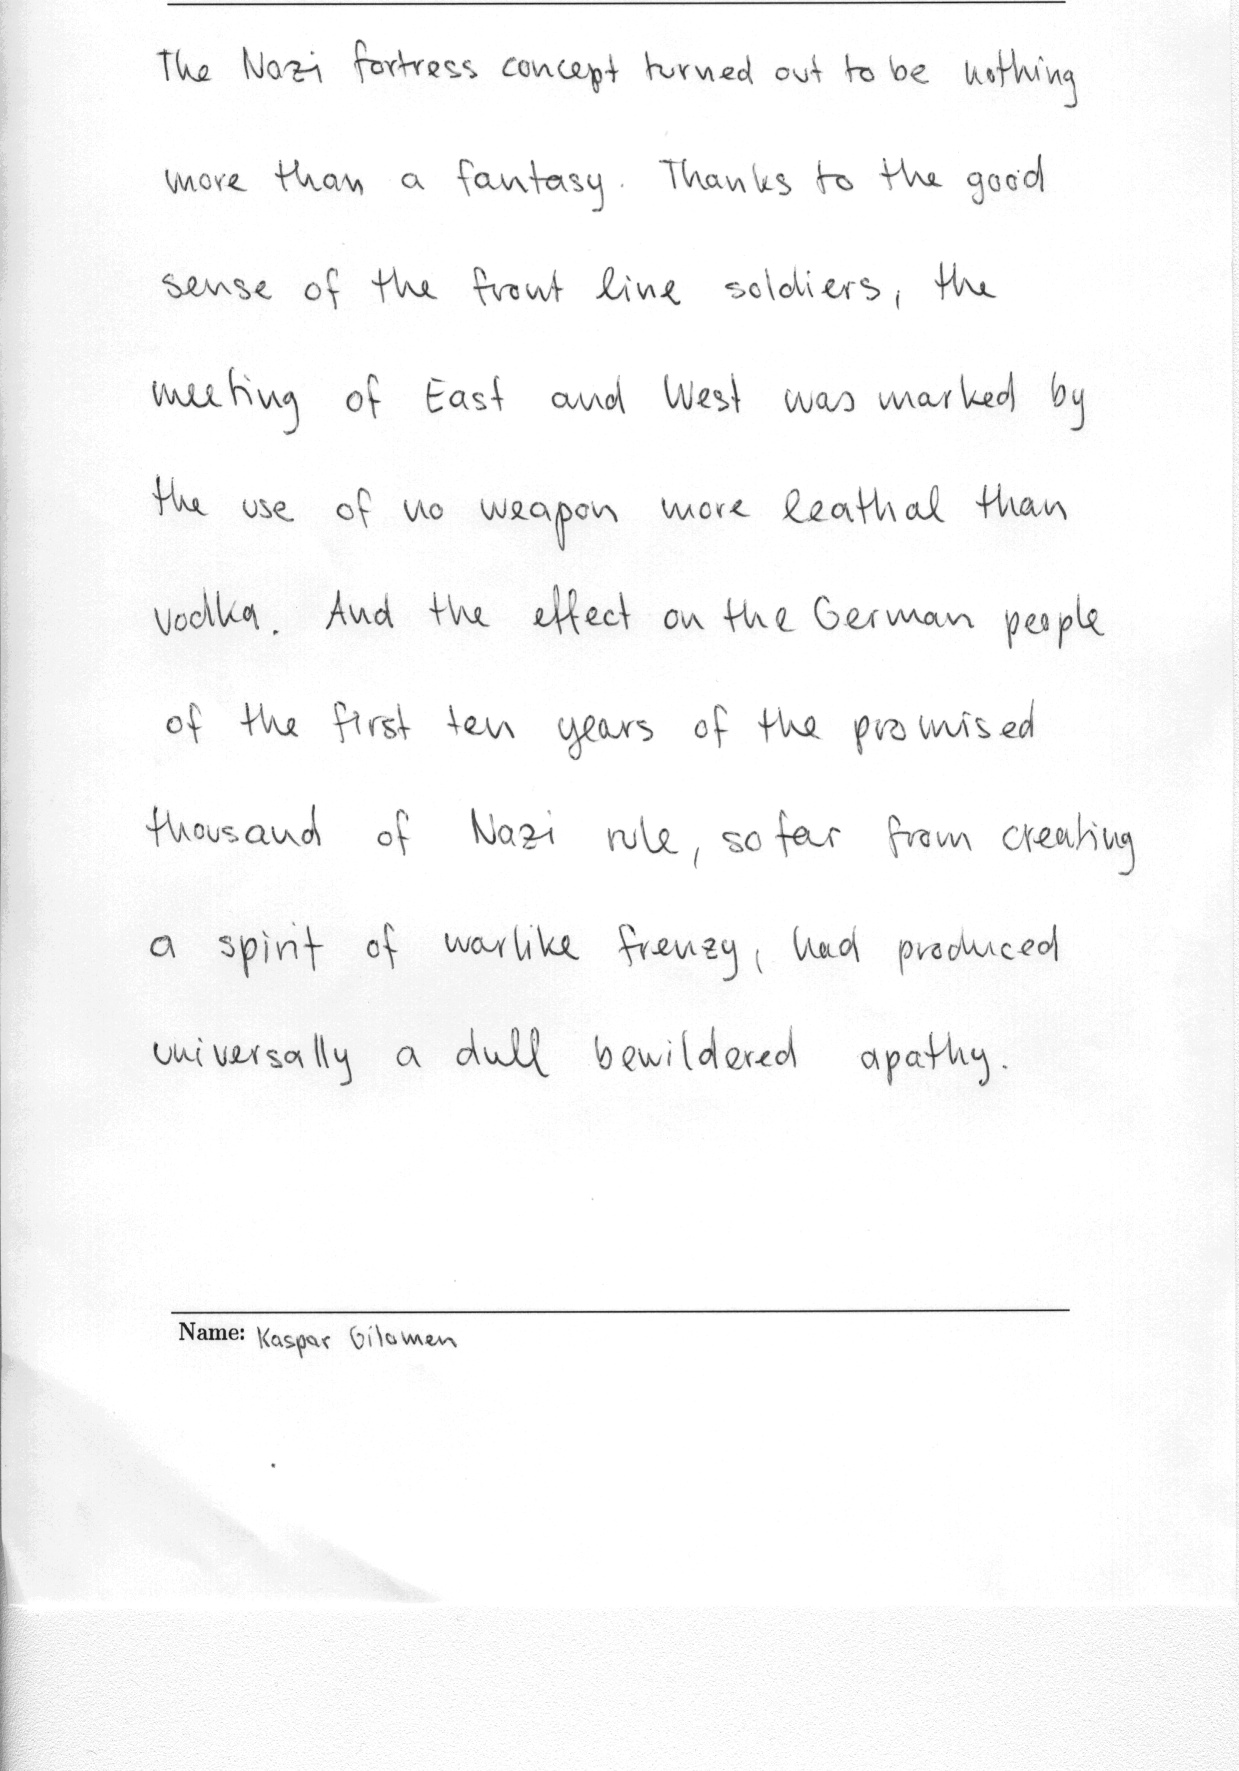 The Nazi fortress concept turned out to be nothing
more than a fantasy. Thanks to the good
sense of the front line soldiers, the
meeting of East and West was marked by
the use of no weapon more leathal than
vodka. And the effect on the German people
of the first ten years of the promised
thousand of Nazi rule, so far from creating
a spirit of warlike frenzy, had produced
universally a dull bewildered apathy.
Name: Kaspar Gilomen